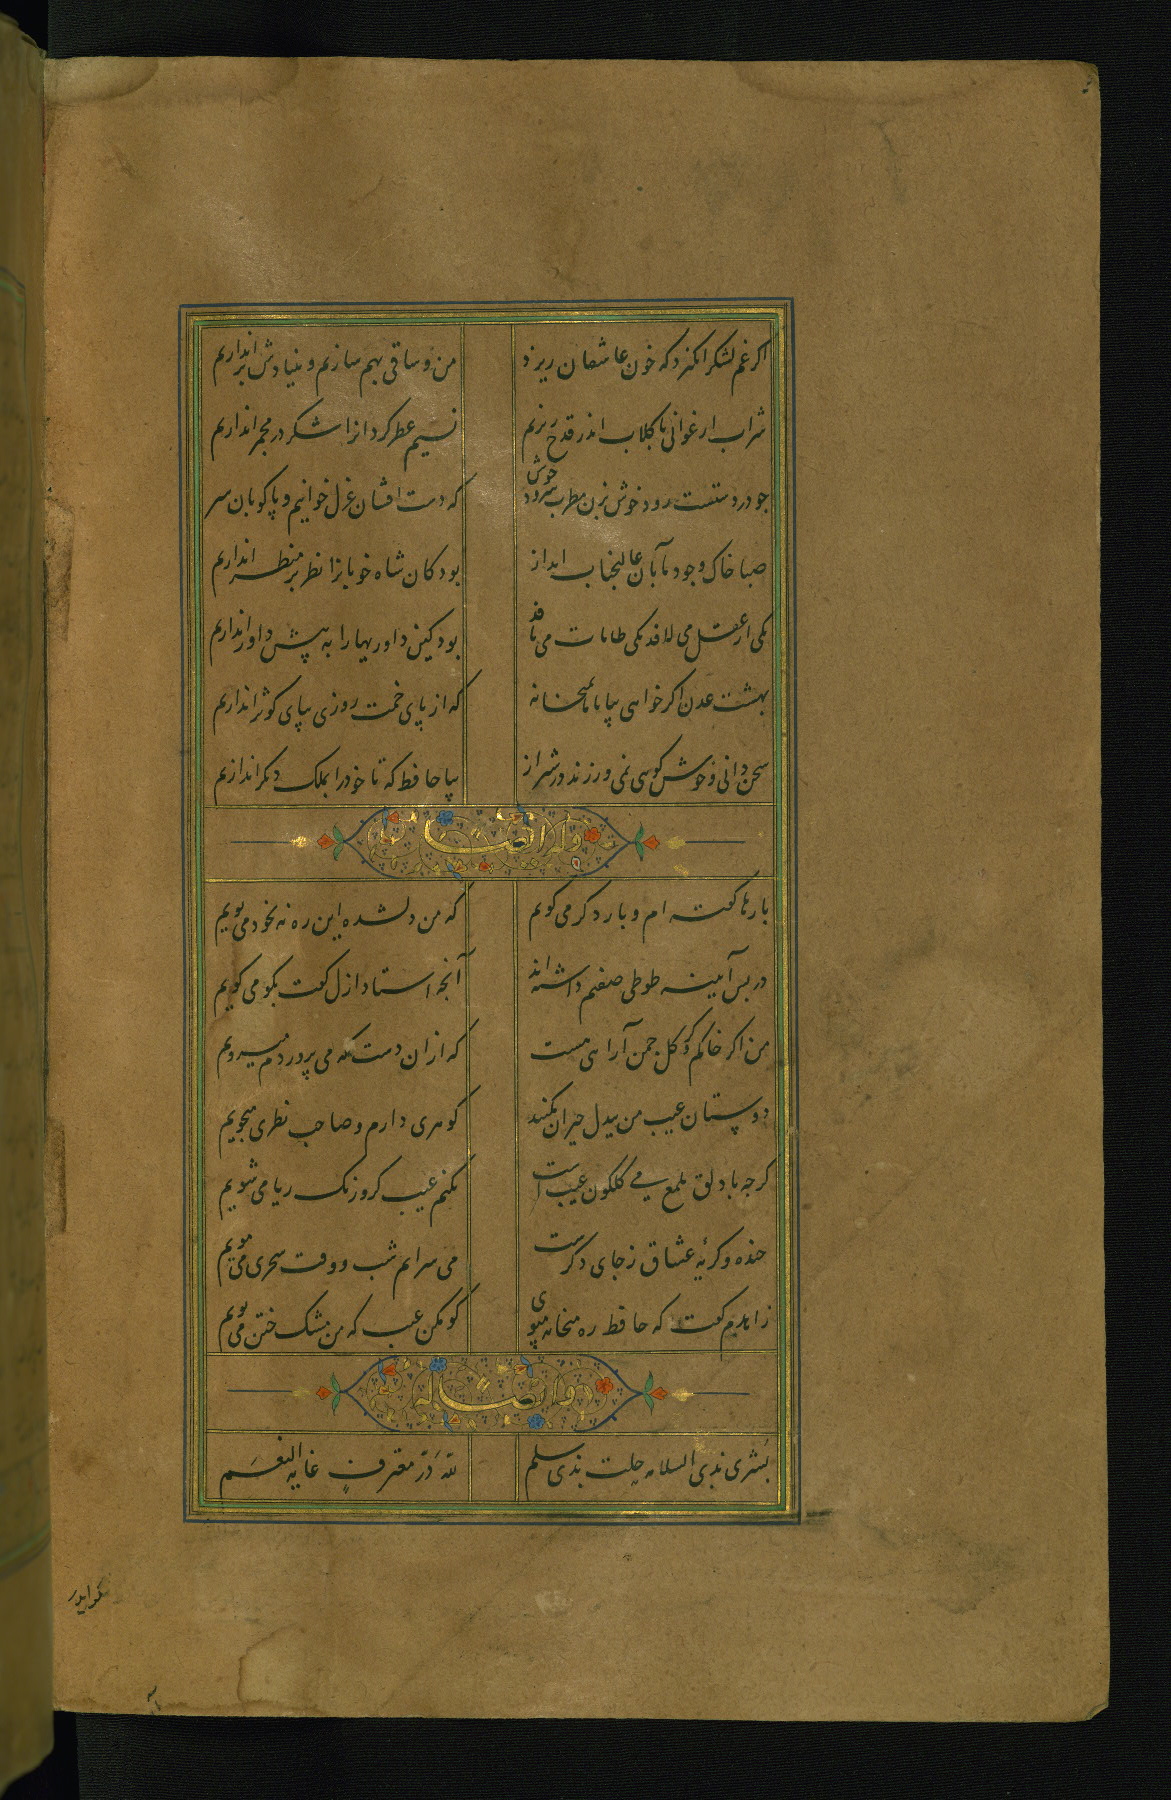 اکر غم لشکر انکیزد که خون عاشقان ریزد من و ساقی بهم سازیم و بنیادش براندازیم
شراب ارغوانی با کلاب اندر قدح ریزیم نسیم عطر کردانرا شکر در مجمر اندازیم
جو در دستست رود خوش بزن مطرب سرود خوش که دست افشان غزل خوانیم و پاکوبان سر
صبا خاک وجود ما بان عالیجناب انداز بود کان شاه خوبانرا نظر بر منظر اندازیم
یکی از عقل می لافد یکی طامات می بافد بود کین داوریها را به پیش داور اندازیم
بهشت عدن اکر خواهی بیا با ما بمیخانه که از پای خمت روزی بپای کوثر اندازیم
سخن دانی و خوش کویی نمی ورزند در شیراز بیا حافظ که تا خود را بملک دیکر اندازیم
وله ایضا
بارها کفته ام و بار دکر می کویم که من دلشده این ره نه بخود می پویم
در پس آینه طوطی صفتم داشته اند آنجه استاد ازل کفت بکو می کویم
من اکر خارم و کر کل جمن آرایی هست که از ان دست که می پروردم میرویم
دوستان عیب من بیدل حیران مکنید کوهری دارم و صاحب نظری میجویم
کرجه با دلق ملمع می کلکون عیب است مکنم عیب کزو رنک ریا می شویم
خنده و کریه عشاق ز جای دکرست می سرایم شب و وقت سحری می مویم
زاهدم کفت که حافظ ره میخانه مپوی کو مکن عیب که من مشک ختن می بویم
وله ایضا
بشری بذی السلامه حلت بذی سلم لله در معترف غایه النعم